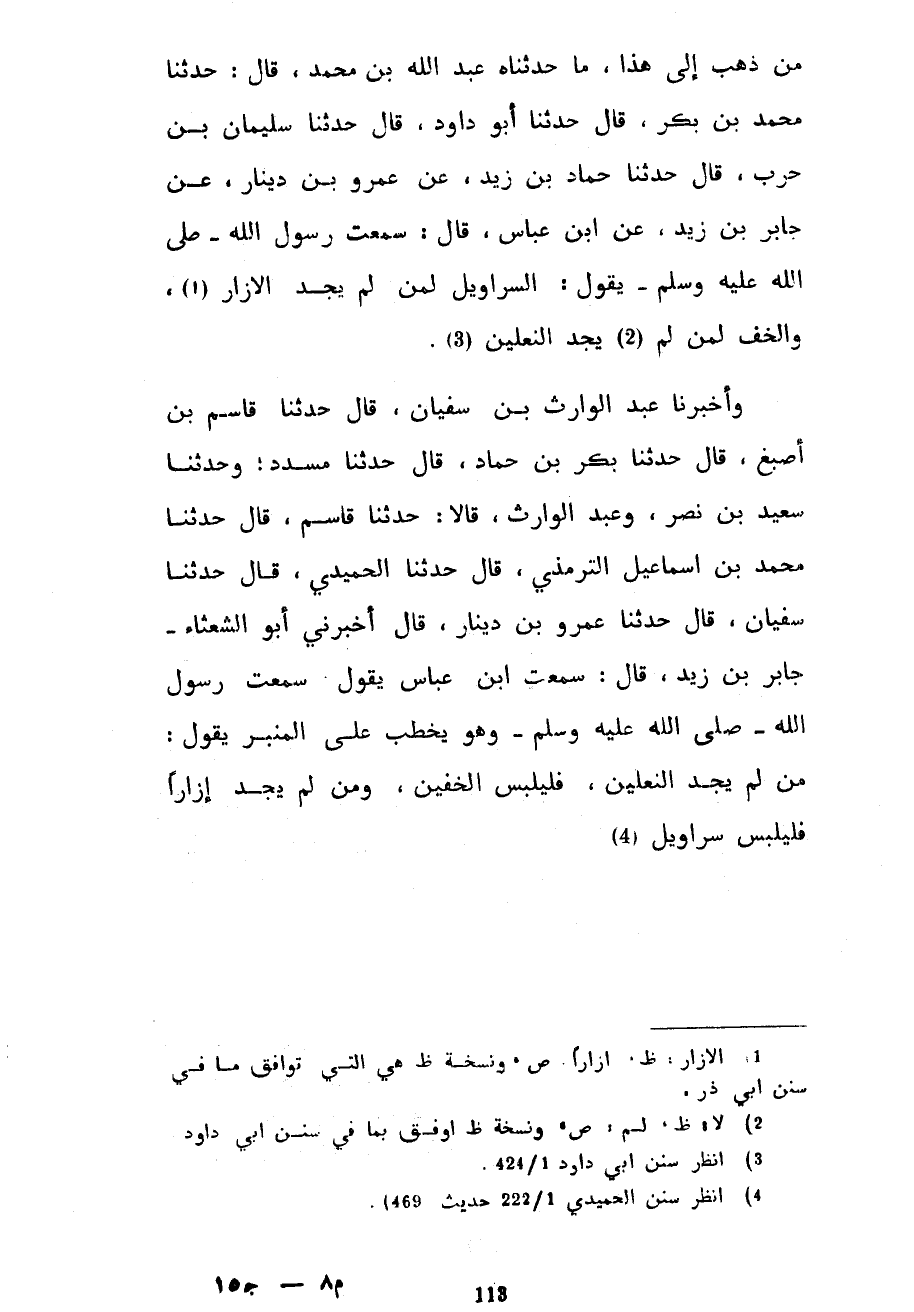 من ذهب إلى هذا ، ما حدثناه عبد الله بن محمد ، قال : حدثنا
محمد بن بكر ، قال حدثنا أبو داود ، قال حدثنا سليمان بـن
حرب ، قال حدثنا حماد بن زيد ، عن عمرو بـن دينار ، عـن
جابر بن زيد ، عن ابن عباس ، قال : سمعت رسول الله ـ صلى
الله عليه وسلم ـ يقول : السراويل لمن لم يجـد الازار (1) ،
والخف لمن لم (2) يجد النعلين (3) .
وأخبرنا عبد الوارث بـن سفيان ، قال حدثنا قاسـم بن
أصبغ ، قال حدثنا بكر بن حماد ، قال حدثنا مسـدد ؛ وحدثنـا
سعيد بن نصر ، وعبد الوارث ، قالا : حدثنا قاسـم ، قال حدثنـا
محمد بن اسماعيل الترمذي ، قال حدثنا الحميدي ، قـال حدثنـا
سفيان ، قال حدثنا عمرو بن دينار ، قال أخبرني أبو الشعثاء ـ
جابر بن زيد ، قال : سمعت ابن عباس يقول سمعت رسول
الله ـ صلى الله عليه وسلم ـ وهو يخطب علـى المنبـر يقول :
من لم يجـد النعلين ، فليلبس الخفين ، ومن لم يجـد إزاراً
فليلبس سراويل (4)
1) الازار : ظ ٠ ازاراً ٠ ص ٠ ونسخـة ظ هي التـي توافق مـا فـي
سنن ابي ذر ٠
2) لا : ظ ٠ لـم : ص ٠ ونسخة ظ اوفـق بما في سنـن ابي داود
3) انظر سنن ابي داود 424/1 .
4) انظر سنن الحميدي 222/1 حديث 469) .
م٨ — ج١٥
113